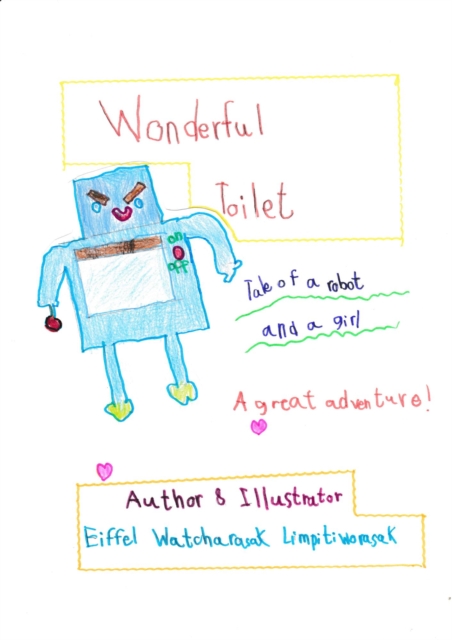 Wonderful
Toilet
on
off
Tale of a robot
and a girl
A great adventure!
Author & Illustrator
Eiffel Watcharasak Limpitiworasak